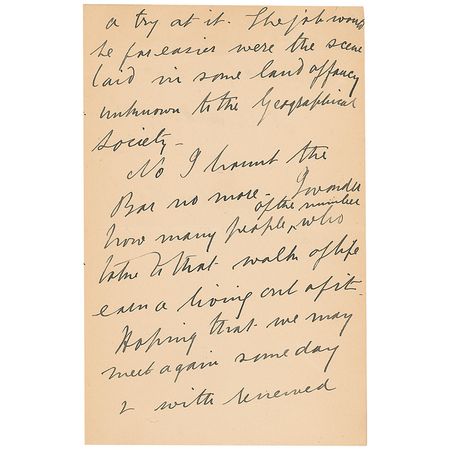 a try at it. The job would
be far easier were the scene
laid in some land of fancy
unknown to the Geographical
Society -
No I haunt the
Bar no more - I wonder
how many people, of the number who
take to that walk of life
earn a living out of it -
Hoping that we may
meet again some day
& with renewed